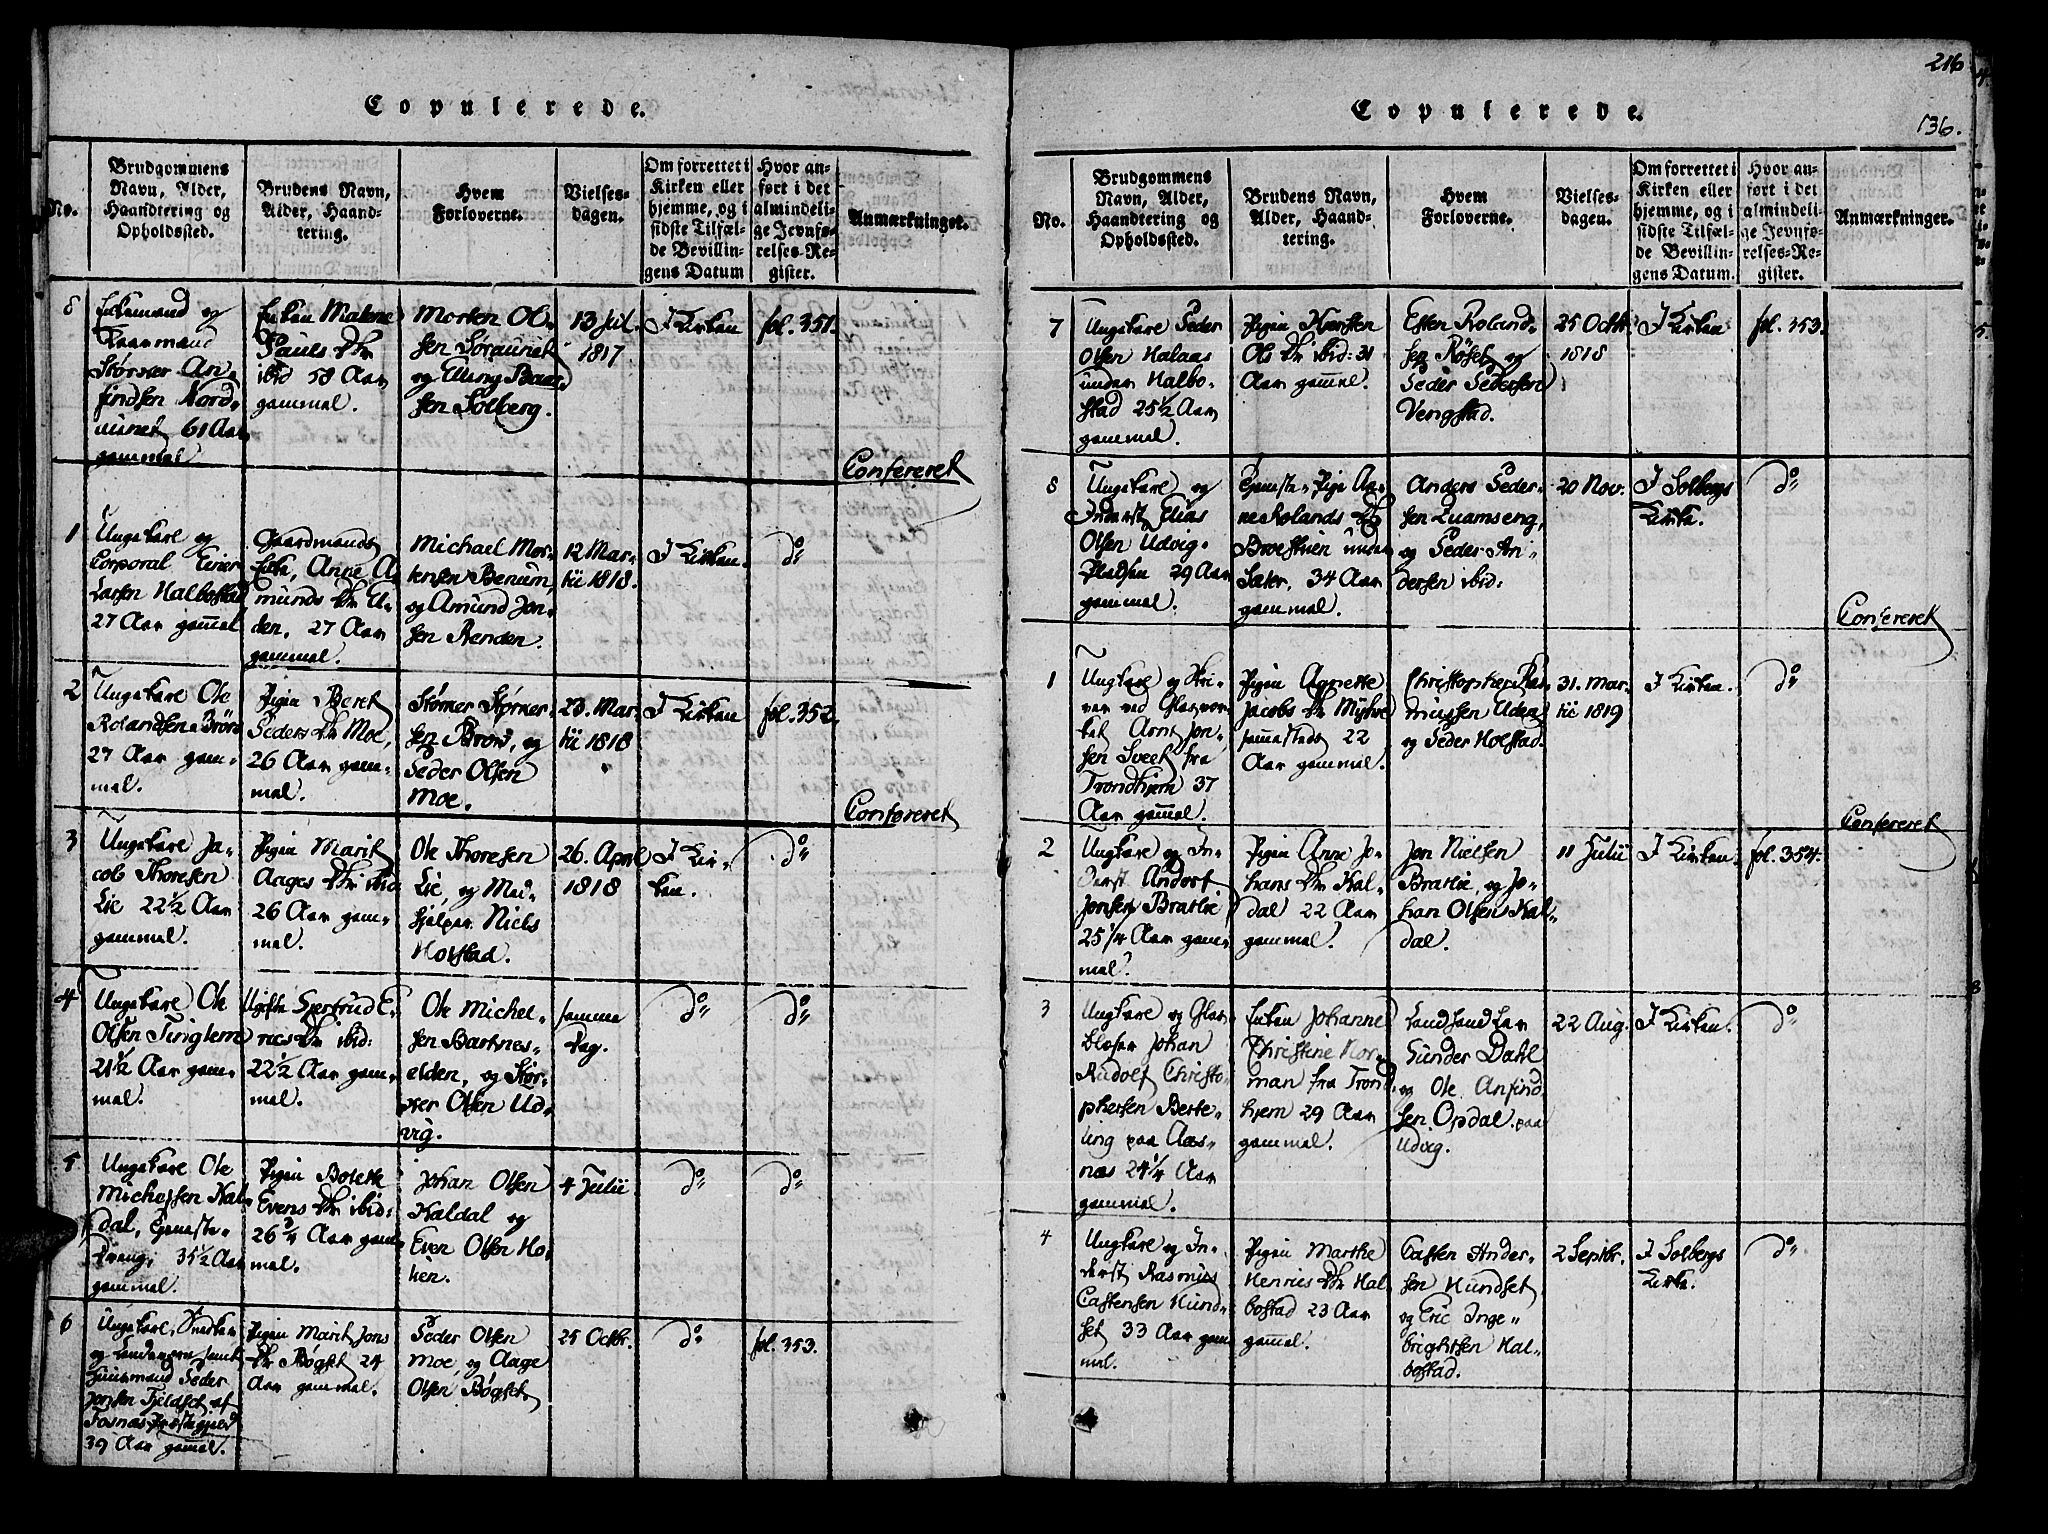 Copulerede.
No.
Brudgommens
Navn, Alder,
Haandtering og
Opholdssted.
Brudens Navn,
Alder, Haand-
tering.
Hvem
Forloverne.
Vielses-
dagen.
Om forrettet i
Kirken eller
hjemme, og i
sidste Tilfæl-
de Bevillin-
gens Datum
Hvor an-
ført i det
almindeli-
ge Jevnfø-
relses-Re-
gister.
Anmærkninger.
8
Enkemand og
Gaarmand
Størcer An-
findsen Nord-
61 Aar
gammel.
Enken Malene
Pauls Dtr
ibid 58 Aar
gammel.
Morten Ol-
sen
og Elling
sen Solberg.
13 Jul.
1817
I Kirken
fol. 351.
Confereret
1
Ungekarl og
Corporal Einer
Larsen Halbostad
27 Aar gam̅el
Gaardmands
Enke, Anne A-
munds Dtr U-
den, 27 Aar
gammel.
Michael Mor-
tensen Benum,
og Amund Jon-
sen Renden.
12 Mar-
tii 1818.
I Kirken.
do
2
Ungekarl Ole
Rolandsen
27 Aar gam-
mel.
Pigen Beret
Peders Dtr Moe,
26 Aar gam-
mel.
Størcer Størcer-
sen, og
Peder Olsen
Moe.
23. Mar-
tii 1818
I Kirken
fol. 352.
Confereret
3
Ungekarl Ja-
cob Thoresen
Lie 22½ Aar
gammel.
Pigen Marit
Aages Dtr ibid
26 Aar gam-
mel.
Ole Thoresen
Lie, og Med-
hjelper Niels
Holstad.
26. April
1818
I Kir-
ken.
do
4
Ungekarl Ole
Olsen Tinglem
21½ Aar gam-
mel.
Ugifte Gjertrud E-
rics Dtr ibid:
22½ Aar gam-
mel.
Ole Michel-
sen Bartnes-
elden, og Stør-
cer Olsen Ud-
vig.
samme
Dag.
do
do
5
Ungekarl Ole
Michelsen Kal-
dal, Tjeneste-
dreng, 35½ Aar
gammel.
Pigen Bolette
Evens Dtr ibid:
26¾ Aar gam-
mel.
Johan Olsen
Kaldal og
Even Olsen Ho-
lien.
4 Julii
do
do
6
Ungekarl, Snedker
og
Huusmand Peder
Jonsen Fjeldset af
Fosnæs Præstegjeld
39 Aar gam̅el.
Pigen Marit Jons
Dtr Bøgset 24
Aar gammel.
Peder Olsen
Moe, og Aage
Olsen Bøgset.
25 Octbr.
do
fol. 353.
216
136.
Copulerede.
No.
Brudgommens
Navn, Alder,
Haandtering og
Opholdssted.
Brudens Navn,
Alder, Haand-
tering.
Hvem
Forloverne.
Vielses-
dagen.
Om forrettet i
Kirken eller
hjemme, og i
sidste Tilfæl-
de Bevillin-
gens Datum.
Hvor an-
ført i det
almindeli-
ge Jevnfø-
relses-Re-
gister.
Anmærkninger.
7
Ungekarl Peder
Olsen Halaas
under Halbo-
stad 25½ Aar
gammel.
Pigen Kjersten
Ols Dtr ibid: 31
Aar gam̅el.
Esten Roland-
sen Röset og
Peder Pedersen
Vengstad.
25 Octbr.
1818
I Kirken
fol. 353.
8
Ungekarl og
Inderst Elias
Olsen Udvig-
Pladsen 29 Aar
gammel.
Tjeneste-Pige An-
ne Rolands Dtr
under
34 Aar
gammel.
Anders Peder-
sen Quamseng,
og Peder An-
dersen ibid:
20 Nov.
I Solbergs
Kirke.
do
Confereret
1
Ungekarl og Skri-
ver ved Glasvær-
ket Arnt Jon-
sen Sveet fra
Trondhjem 37
Aar gam̅el.
Pigen Agnette
Jacobs Dtr
sammesteds 22
Aar gammel.
Christopher Ras-
mussen Uden
og Peder Holstad.
31. Mar-
tii 1819
I Kirken.
do
Confereret
2
Ungekarl og In-
derst Andors
Jonsen Bratlie
25¼ Aar gam-
mel.
Pigen Anne Jo-
hans Dtr Kal-
dal 22 Aar
gammel.
Jon Nielsen
Bratlie, og Jo-
han Olsen Kal-
dal.
11 Julii
I Kirken.
fol. 354.
3
Ungekarl og Glas-
blæser Johan
Rudolf Christo-
phersen Berte-
ling paa Aas-
næs 24¼ Aar
gammel.
Enken Johanne
Christine Nor-
man fra Trond-
hjem 29 Aar
gammel.
Gunder Dahl
og Ole Anfind-
sen Opdal paa
Udvig.
22 Aug.
I Kirken.
do
4
Ungekarl og In-
derst Rasmus
Castensen Hund-
set 33 Aar gam-
mel.
Pigen Marthe
Henrics Dtr Hal-
bostad 23 Aar
gam̅el.
Casten Ander-
sen Hundset
og Eric Inge-
brightsen Hal-
bostad.
2 Septbr.
I Solbergs
Kirke.
do